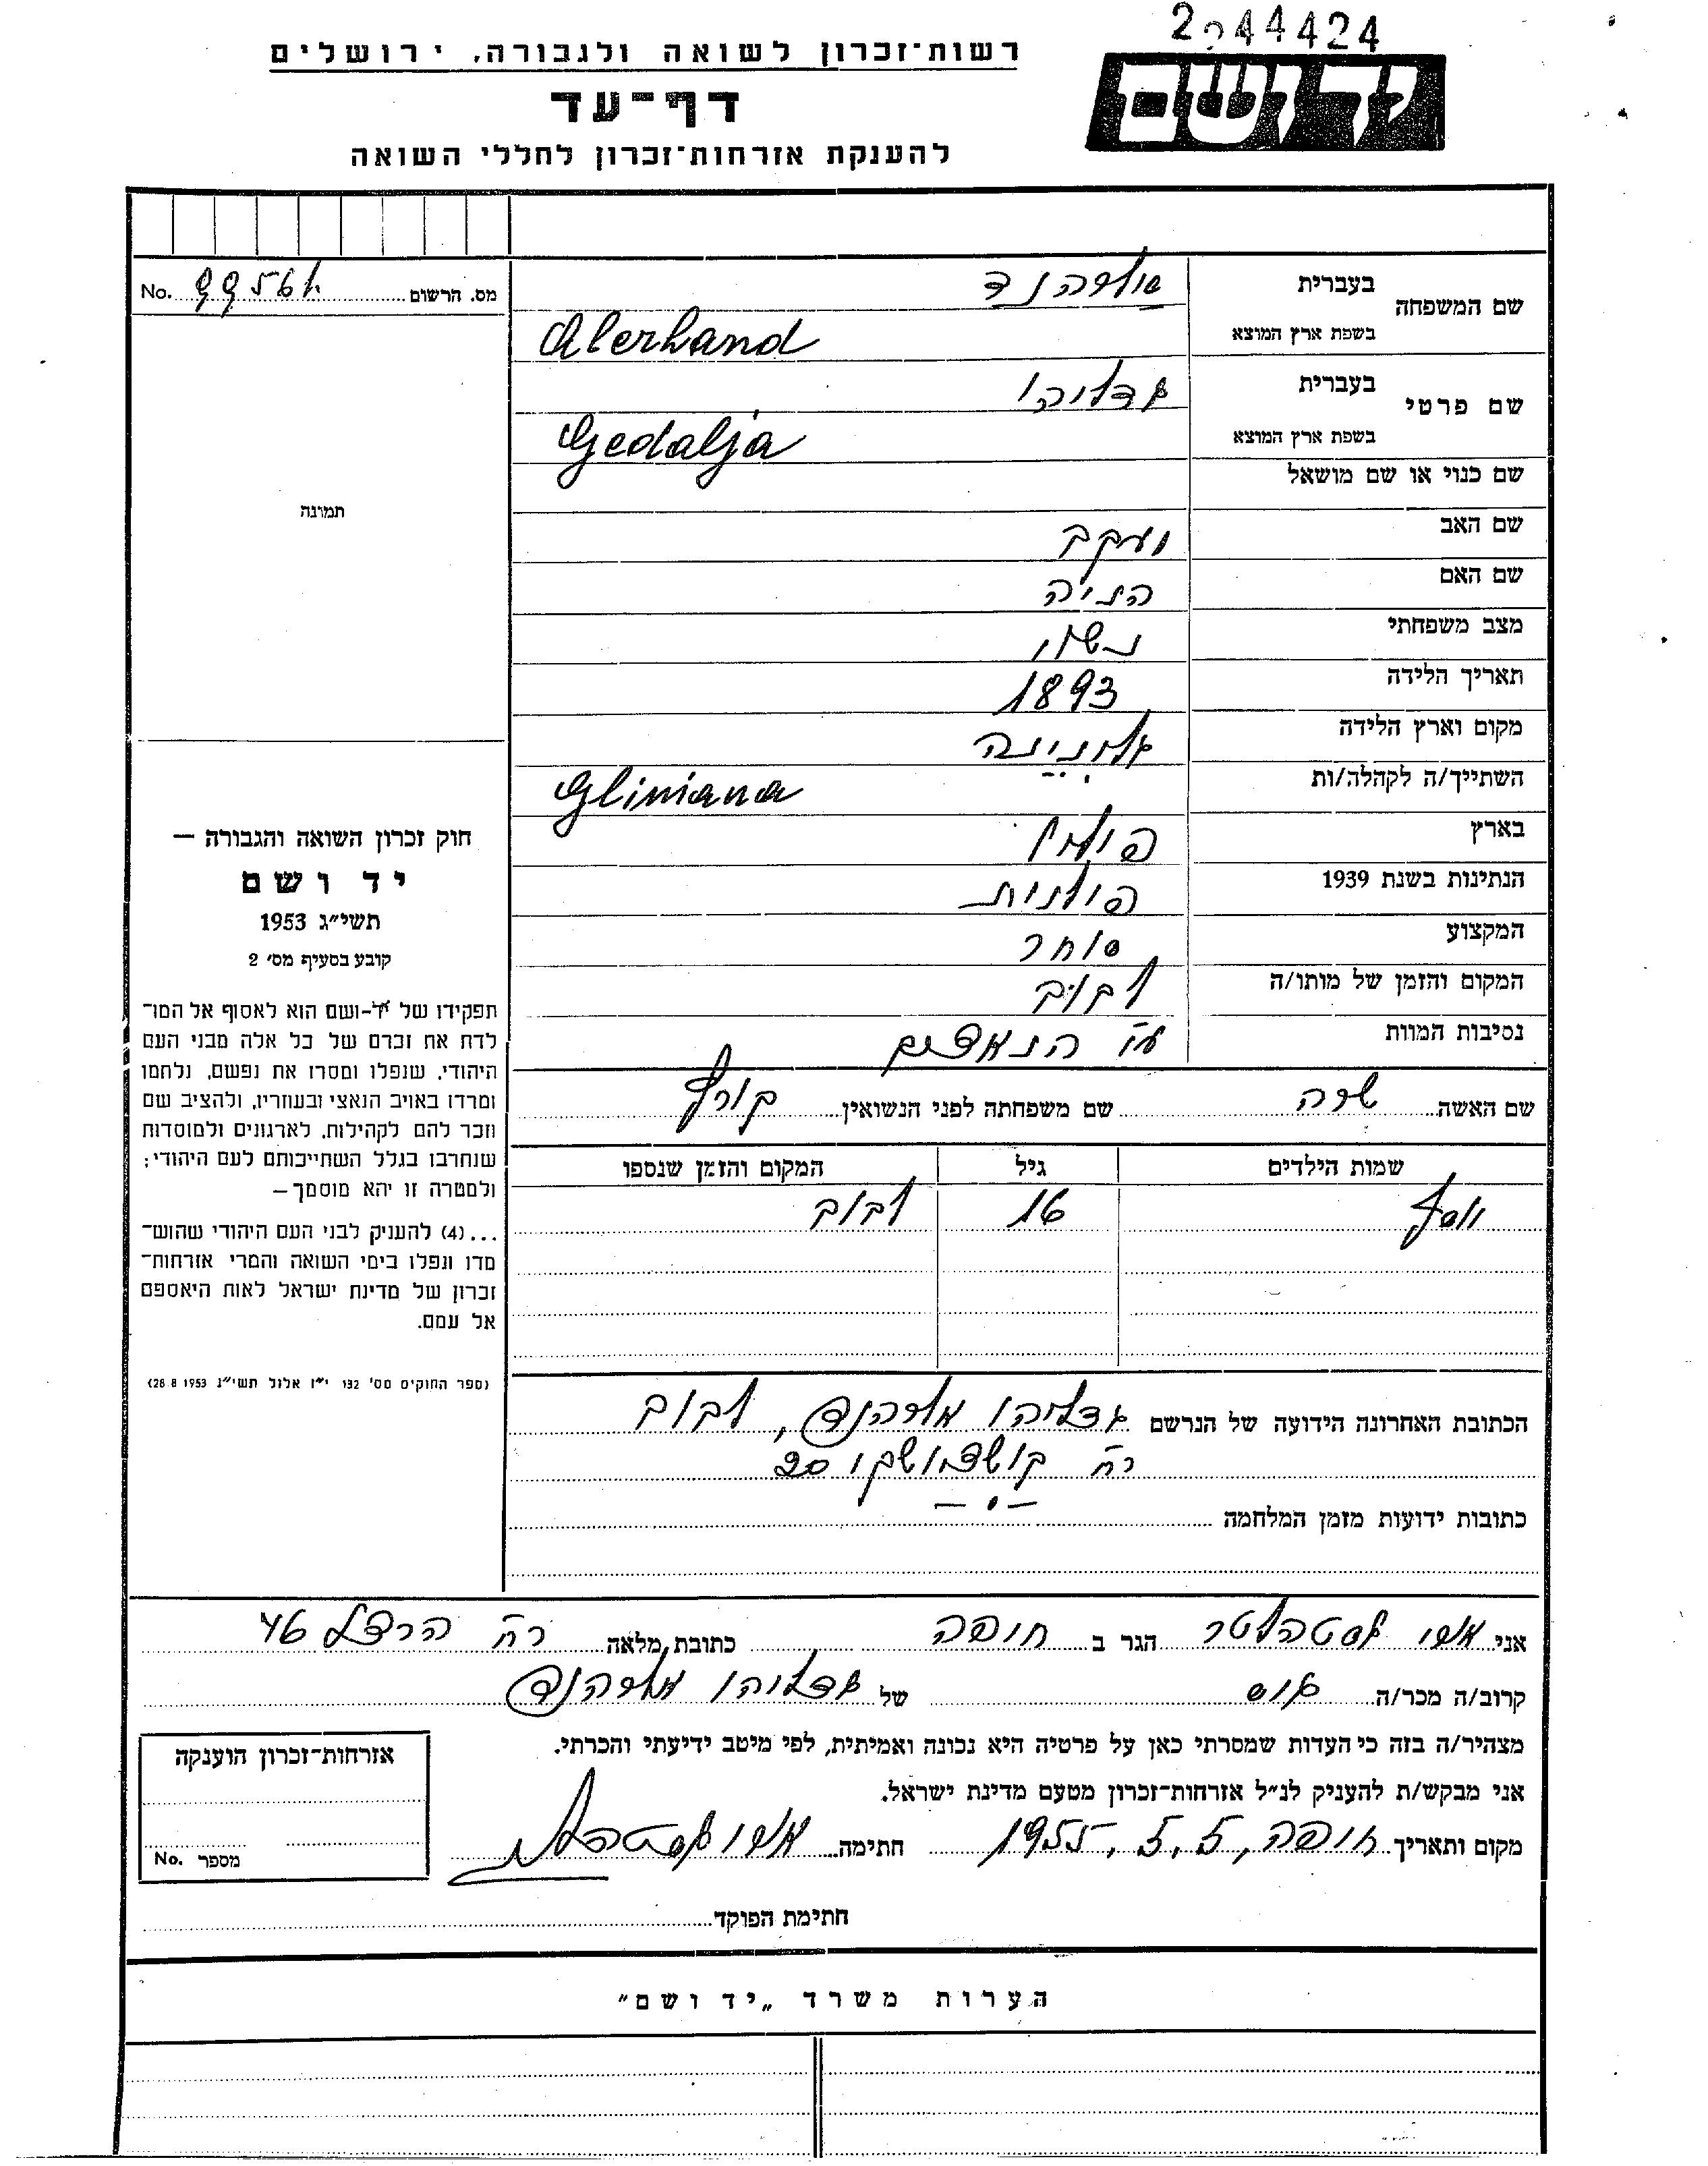 2044424
יד ושם
רשות־זכרון לשואה ולגבורה, ירושלים
דף־עד
להענקת אזרחות־זכרון לחללי השואה
מס. הרשום No.
שם המשפחה
בעברית
בשפת ארץ המוצא Alerhand
שם פרטי
בעברית גדליהו
בשפת ארץ המוצא Gedalja
שם כנוי או שם מושאל
שם האב יעקב
שם האם הניה
מצב משפחתי נשוי
תאריך הלידה 1893
מקום וארץ הלידה גלינינה
השתייך/ה לקהלה/ות Gliniana
בארץ פולין
הנתינות בשנת 1939 פולנית
המקצוע סוחר
המקום והזמן של מותו/ה לבוב
נסיבות המוות ע"י הנאצים
שם האשה שרה שם משפחתה לפני הנשואין
שמות הילדים גיל המקום והזמן שנספו
יוסף 16 לבוב
הכתובת האחרונה הידועה של הנרשם גדליהו אלרהנד, לבוב
רח' קושצושקו 20
כתובות ידועות מזמן המלחמה
תמונה
חוק זכרון השואה והגבורה –
יד ושם
תשי״ג 1953
קובע בסעיף מס׳ 2
תפקידו של יד-ושם הוא לאסוף אל המו־
לדת את זכרם של כל אלה מבני העם
היהודי, שנפלו ומסרו את נפשם, נלחמו
ומרדו באויב הנאצי ובעוזריו, ולהציב שם
וזכר להם לקהילות, לארגונים ולמוסדות
שנחרבו בגלל השתייכותם לעם היהודי;
ולמטרה זו יהא מוסמך–
...(4) להעניק לבני העם היהודי שהוש־
מדו ונפלו בימי השואה והמרי אזרחות־
זכרון של מדינת ישראל לאות היאספם
אל עמם.
(ספר החוקים מס׳ 132 י״ז אלול תשי״ג 28.8.1953)
אני הגר ב חיפה כתובת מלאה רח' הרצל 46
קרוב/ה מכר/ה גיס של גדליהו אלרהנד
מצהיר/ה בזה כי העדות שמסרתי כאן על פרטיה היא נכונה ואמיתית, לפי מיטב ידיעתי והכרתי.
אני מבקש/ת להעניק לנ״ל אזרחות־זכרון מטעם מדינת ישראל.
מקום ותאריך חיפה, 5, 5, 1955 חתימה
אזרחות־זכרון הוענקה
מספר No.
חתימת הפוקד
הערות משרד „יד ושם״